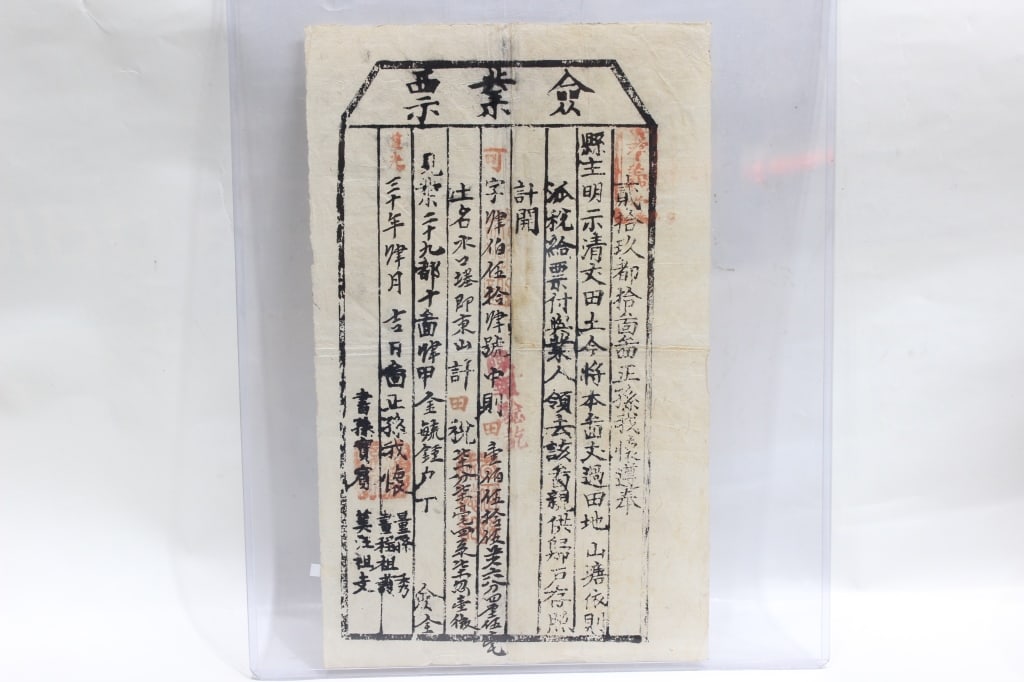 僉業票
貳拾玖都拾啚啚正孫我懷遵奉
縣主明示清丈田土今將本啚丈過田地山塘依則
派稅給票付與業人領去該啚親供歸户存照
計開
可字肆伯伍拾肆號中則田壹伯伍拾
土名水口塝即東山計田稅
見業二十九都十啚肆甲金毓鍾户丁
道光三十年肆月吉日啚正孫我懷
書孫寶賓
量孫秀
畫程祖義
算汪祖文